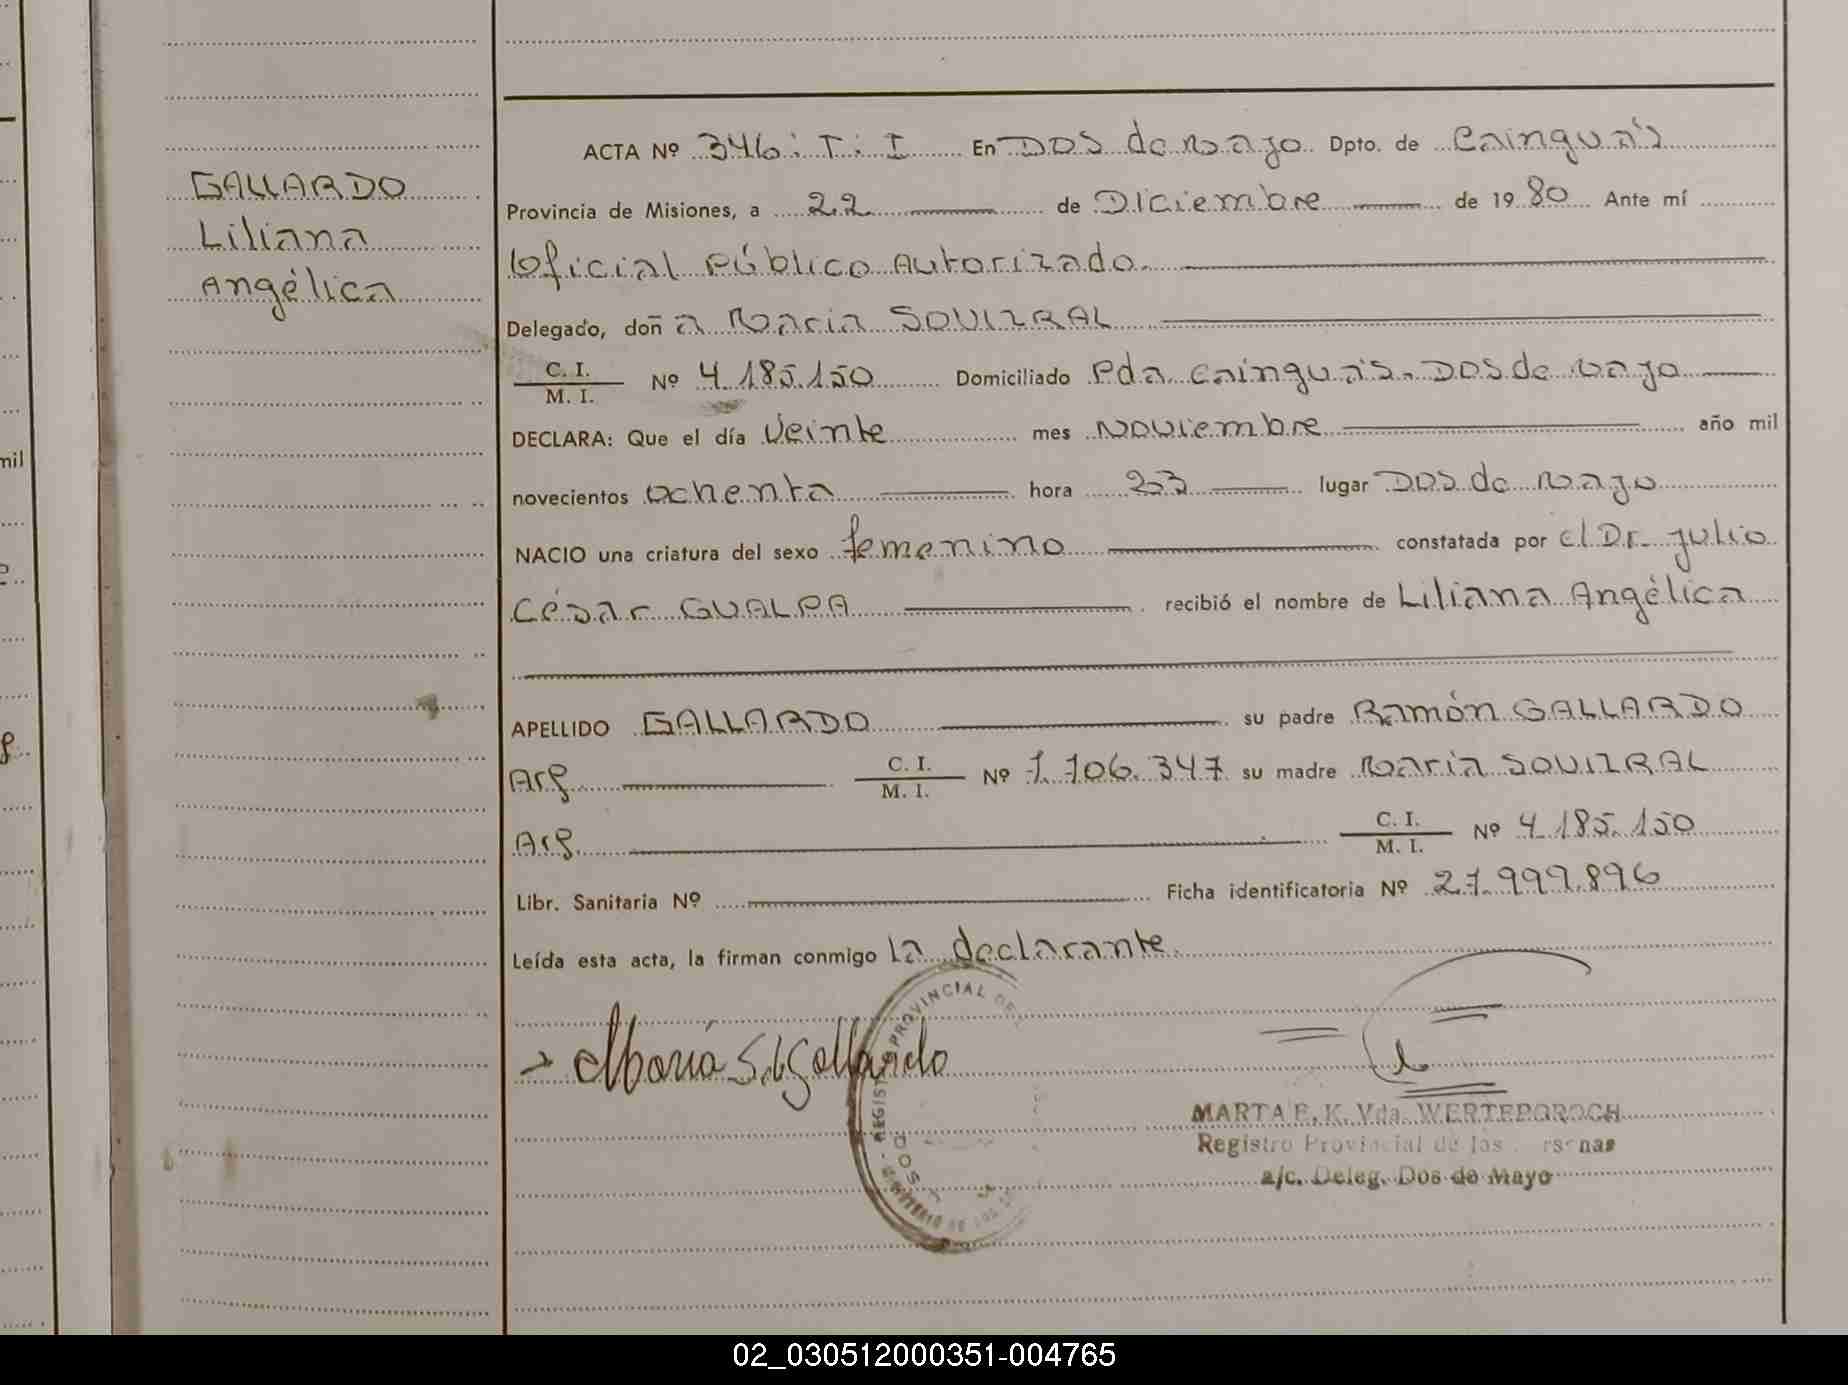 GALLARDO
Liliana
Angélica
ACTA Nº 346: T: I En Dos de Mayo Dpto. de Cainguás
Provincia de Misiones, a 22 de Diciembre de 1980 Ante mí
Oficial Público Autorizado.
Delegado, doña María SOUIZRAL
C. I.
M. I.
Nº 4.185.150 Domiciliado Pda Cainguás. Dos de Mayo
DECLARA: Que el día Veinte mes Noviembre año mil
novecientos ochenta hora 23 lugar Dos de Mayo
NACIO una criatura del sexo femenino constatada por el Dr. Julio
César GUALPA recibió el nombre de Liliana Angélica
APELLIDO GALLARDO su padre Ramón GALLARDO
Arg C. I.
M. I.
Nº 7.706.347 su madre María SOUIZRAL
Arg C. I.
M. I.
Nº 4.185.150
Libr. Sanitaria Nº Ficha identificatoria Nº 27.999.896
Leída esta acta, la firman conmigo la declarante.
María S. de Gallardo
PROVINCIAL DE
MARTA E. K. Vda. WERTERBROCH
Registro Provincial de las
a/c. Deleg. Dos de Mayo
mil
02_030512000351-004765